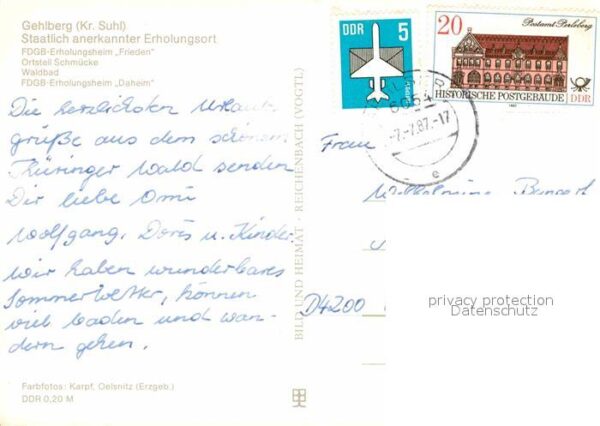 Gehlberg (Kr. Suhl)
Staatlich anerkannter Erholungsort
FDGB-Erholungsheim „Frieden"
Ortsteil Schmücke
Waldbad
FDGB-Erholungsheim „Daheim"
Die herzlichsten Urlaubs-
grüße aus dem schönen
Thüringer Wald senden
Dir liebe Omi
Wolfgang, Doris u. Kinder.
Wir haben wunderbares
Sommerwetter, können
viel baden und wan-
dern gehen.
Farbfotos: Karpf, Oelsnitz (Erzgeb.)
DDR 0,20 M
BILD UND HEIMAT · REICHENBACH (VOGTL)
DDR 5
20 Postamt Perleberg
HISTORISCHE POSTGEBÄUDE DDR
-7.-7.87.-17
e
Frau
Wilhelmine
D4200
privacy protection
Datenschutz